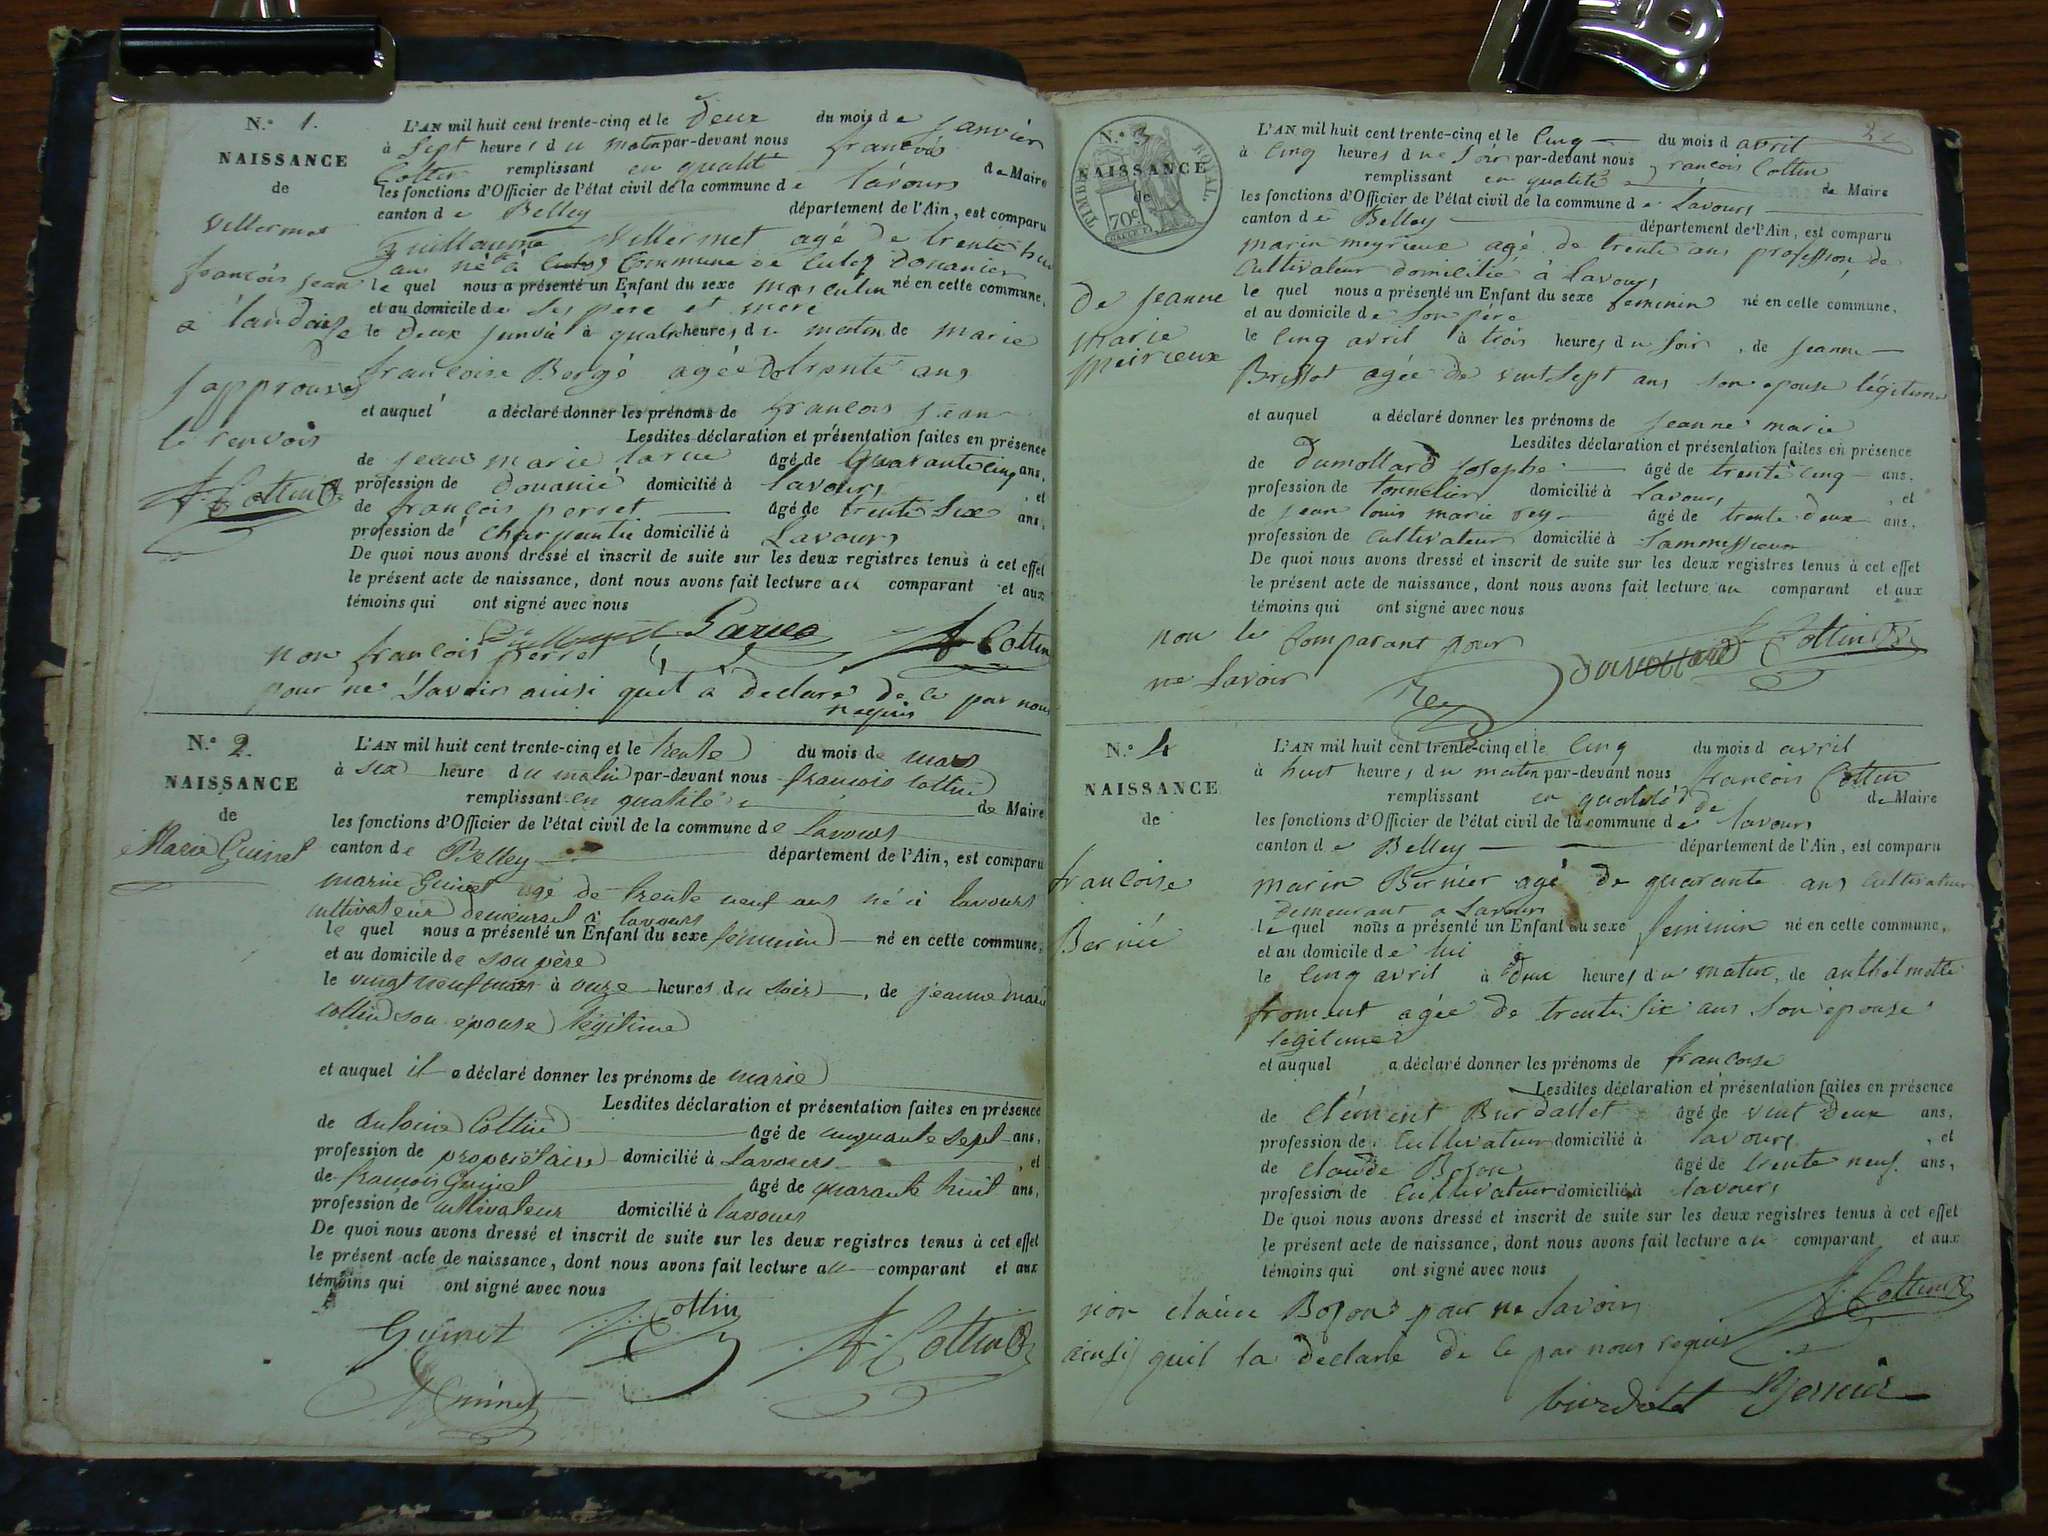 N.º 1.
NAISSANCE
de
Villermet
françois jean
à landaise
J'approuve
le renvois
f. Cottin
L'AN mil huit cent trente-cinq et le Deux du mois de janvier
à Sept heures du matin par-devant nous françois
Cottin remplissant en qualité de Maire
les fonctions d'Officier de l'état civil de la commune de lavours
canton de Belley département de l'Ain, est comparu
Guillaume Villermet agé de trente huit
ans né à Commune de Culoz Douanier
le quel nous a présenté un Enfant du sexe masculin né en cette commune,
et au domicile de Ses père et mere
le Deux janvié à quatre heures du matin de marie
françoise Bergé agée De trente ans
et auquel a déclaré donner les prénoms de françois jean
Lesdites déclaration et présentation faites en présence
de jean marie larue âgé de quarante cinq ans,
profession de Douanié domicilié à lavours, et
de françois perret âgé de trente Six ans,
profession de Charpantié domicilié à Lavours
De quoi nous avons dressé et inscrit de suite sur les deux registres tenus à cet effet
le présent acte de naissance, dont nous avons fait lecture au comparant et aux
témoins qui ont signé avec nous
Larue f. Cottin
non françois perret
pour ne Savoir ainsi qu'il a declaré de ce par nous
requis
N.º 2.
NAISSANCE
de
Marie Guinet
L'AN mil huit cent trente-cinq et le trente du mois de mars
à six heure du matin par-devant nous françois Cottin
remplissant en qualité de Maire
les fonctions d'Officier de l'état civil de la commune de Lavours
canton de Belley département de l'Ain, est comparu
marin Guinet agé de trente neuf ans né à lavours
cultivateur demeurant à lavours
le quel nous a présenté un Enfant du sexe féminin né en cette commune,
et au domicile de son père
le vingt neuf mars à onze heures du soir, de jeanne marie
Cottin son épouse légitime
et auquel il a déclaré donner les prénoms de marie
Lesdites déclaration et présentation faites en présence
de antoine Cottin âgé de cinquante sept ans,
profession de propriétaire domicilié à Lavours, et
de françois Guinet âgé de quarante huit ans,
profession de cultivateur domicilié à lavours
De quoi nous avons dressé et inscrit de suite sur les deux registres tenus à cet effet
le présent acte de naissance, dont nous avons fait lecture au comparant et aux
témoins qui ont signé avec nous
Guinet Cottin f. Cottin
Guinet
2
N.º 3
NAISSANCE
de
TIMBRE ROYAL
70c
De jeanne
marie
meirieux
L'AN mil huit cent trente-cinq et le Cinq du mois d avril
à Cinq heures du Soir par-devant nous françois Cottin
remplissant en qualité de Maire
les fonctions d'Officier de l'état civil de la commune de Lavours
canton de Belley département de l'Ain, est comparu
marin meyrieux agé de trente ans profession de
Cultivateur domicilié à Lavours
le quel nous a présenté un Enfant du sexe feminin né en cette commune,
et au domicile de Son père
le Cinq avril à trois heures du Soir, de jeanne
Brissot agée de vint Sept ans son epouse légitime
et auquel a déclaré donner les prénoms de jeanne marie
Lesdites déclaration et présentation faites en présence
de Dumollard Josephe âgé de trente Cinq ans,
profession de tonnelier domicilié à Lavours, et
de jean louis marie rey âgé de trente Deux ans,
profession de Cultivateur domicilié à
De quoi nous avons dressé et inscrit de suite sur les deux registres tenus à cet effet
le présent acte de naissance, dont nous avons fait lecture au comparant et aux
témoins qui ont signé avec nous
non le Comparant pour
ne Savoir
f. Cottin
Rey
N.º 4
NAISSANCE
de
francoise
Bernié
L'AN mil huit cent trente-cinq et le cinq du mois d avril
à huit heures du matin par-devant nous françois Cottin
remplissant en qualité de de Maire
les fonctions d'Officier de l'état civil de la commune de lavours
canton de Belley département de l'Ain, est comparu
marin Bernier agé de quarante ans cultivateur
Demeurant a Lavours
le quel nous a présenté un Enfant du sexe feminin né en cette commune,
et au domicile de lui
le cinq avril à deux heures du matin, de anthelmette
froment agée de trente Six ans Son epouse
legitime
et auquel a déclaré donner les prénoms de francoise
Lesdites déclaration et présentation faites en présence
de Clément Burdallet âgé de vint Deux ans,
profession de Cultivateur domicilié à lavours, et
de Claude Bozon âgé de trente neuf ans,
profession de Cultivateur domicilié à lavours
De quoi nous avons dressé et inscrit de suite sur les deux registres tenus à cet effet
le présent acte de naissance, dont nous avons fait lecture au comparant et aux
témoins qui ont signé avec nous
non Bozon pour ne Savoir
ainsi quil la declaré de ce par nous requis
f. Cottin
Bernier